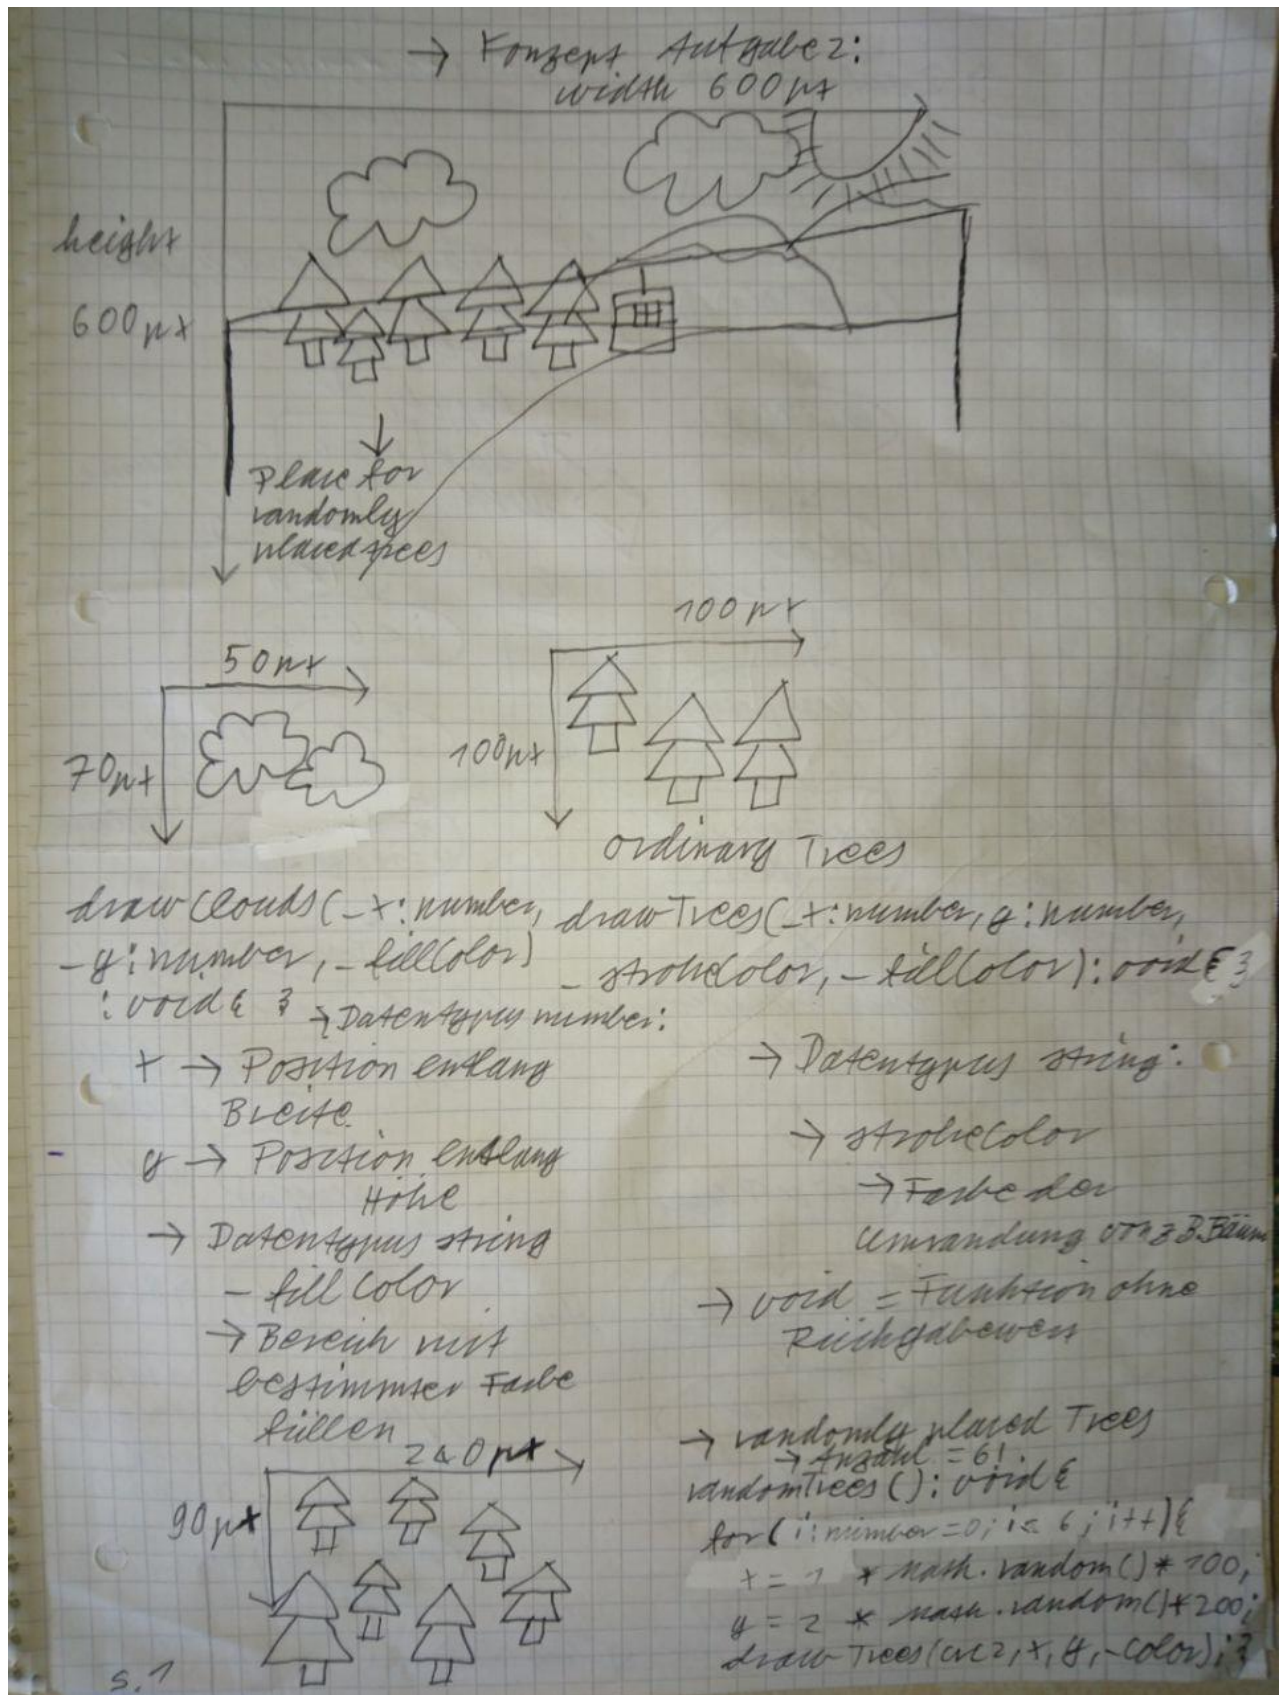 → Konzept Aufgabe 2:
width 600px
height
600px
Place for
randomly
placed trees
50px
70px
100px
100px
ordinary Trees
drawClouds(_x: number,
_y: number, _fillColor)
: void { }
drawTrees(_x: number, y: number,
_strokeColor, _fillColor): void { }
→ Datentypus number:
x → Position entlang
Breite
y → Position entlang
Höhe
→ Datentypus string
- fillColor
→ Bereich mit
bestimmter Farbe
füllen
→ Datentypus string:
→ strokeColor
→ Farbe der
Umrandung von z B. Bäum
→ void = Funktion ohne
Rückgabewert
90px
→ randomly placed Trees
→ Anzahl = 6!
randomTrees(): void {
for( i: number = 0; i < 6; i++){
x = 1 * Math.random() * 100;
y = 2 * Math.random() * 200;
drawTrees(crc2, x, y, -color); }
S. 1